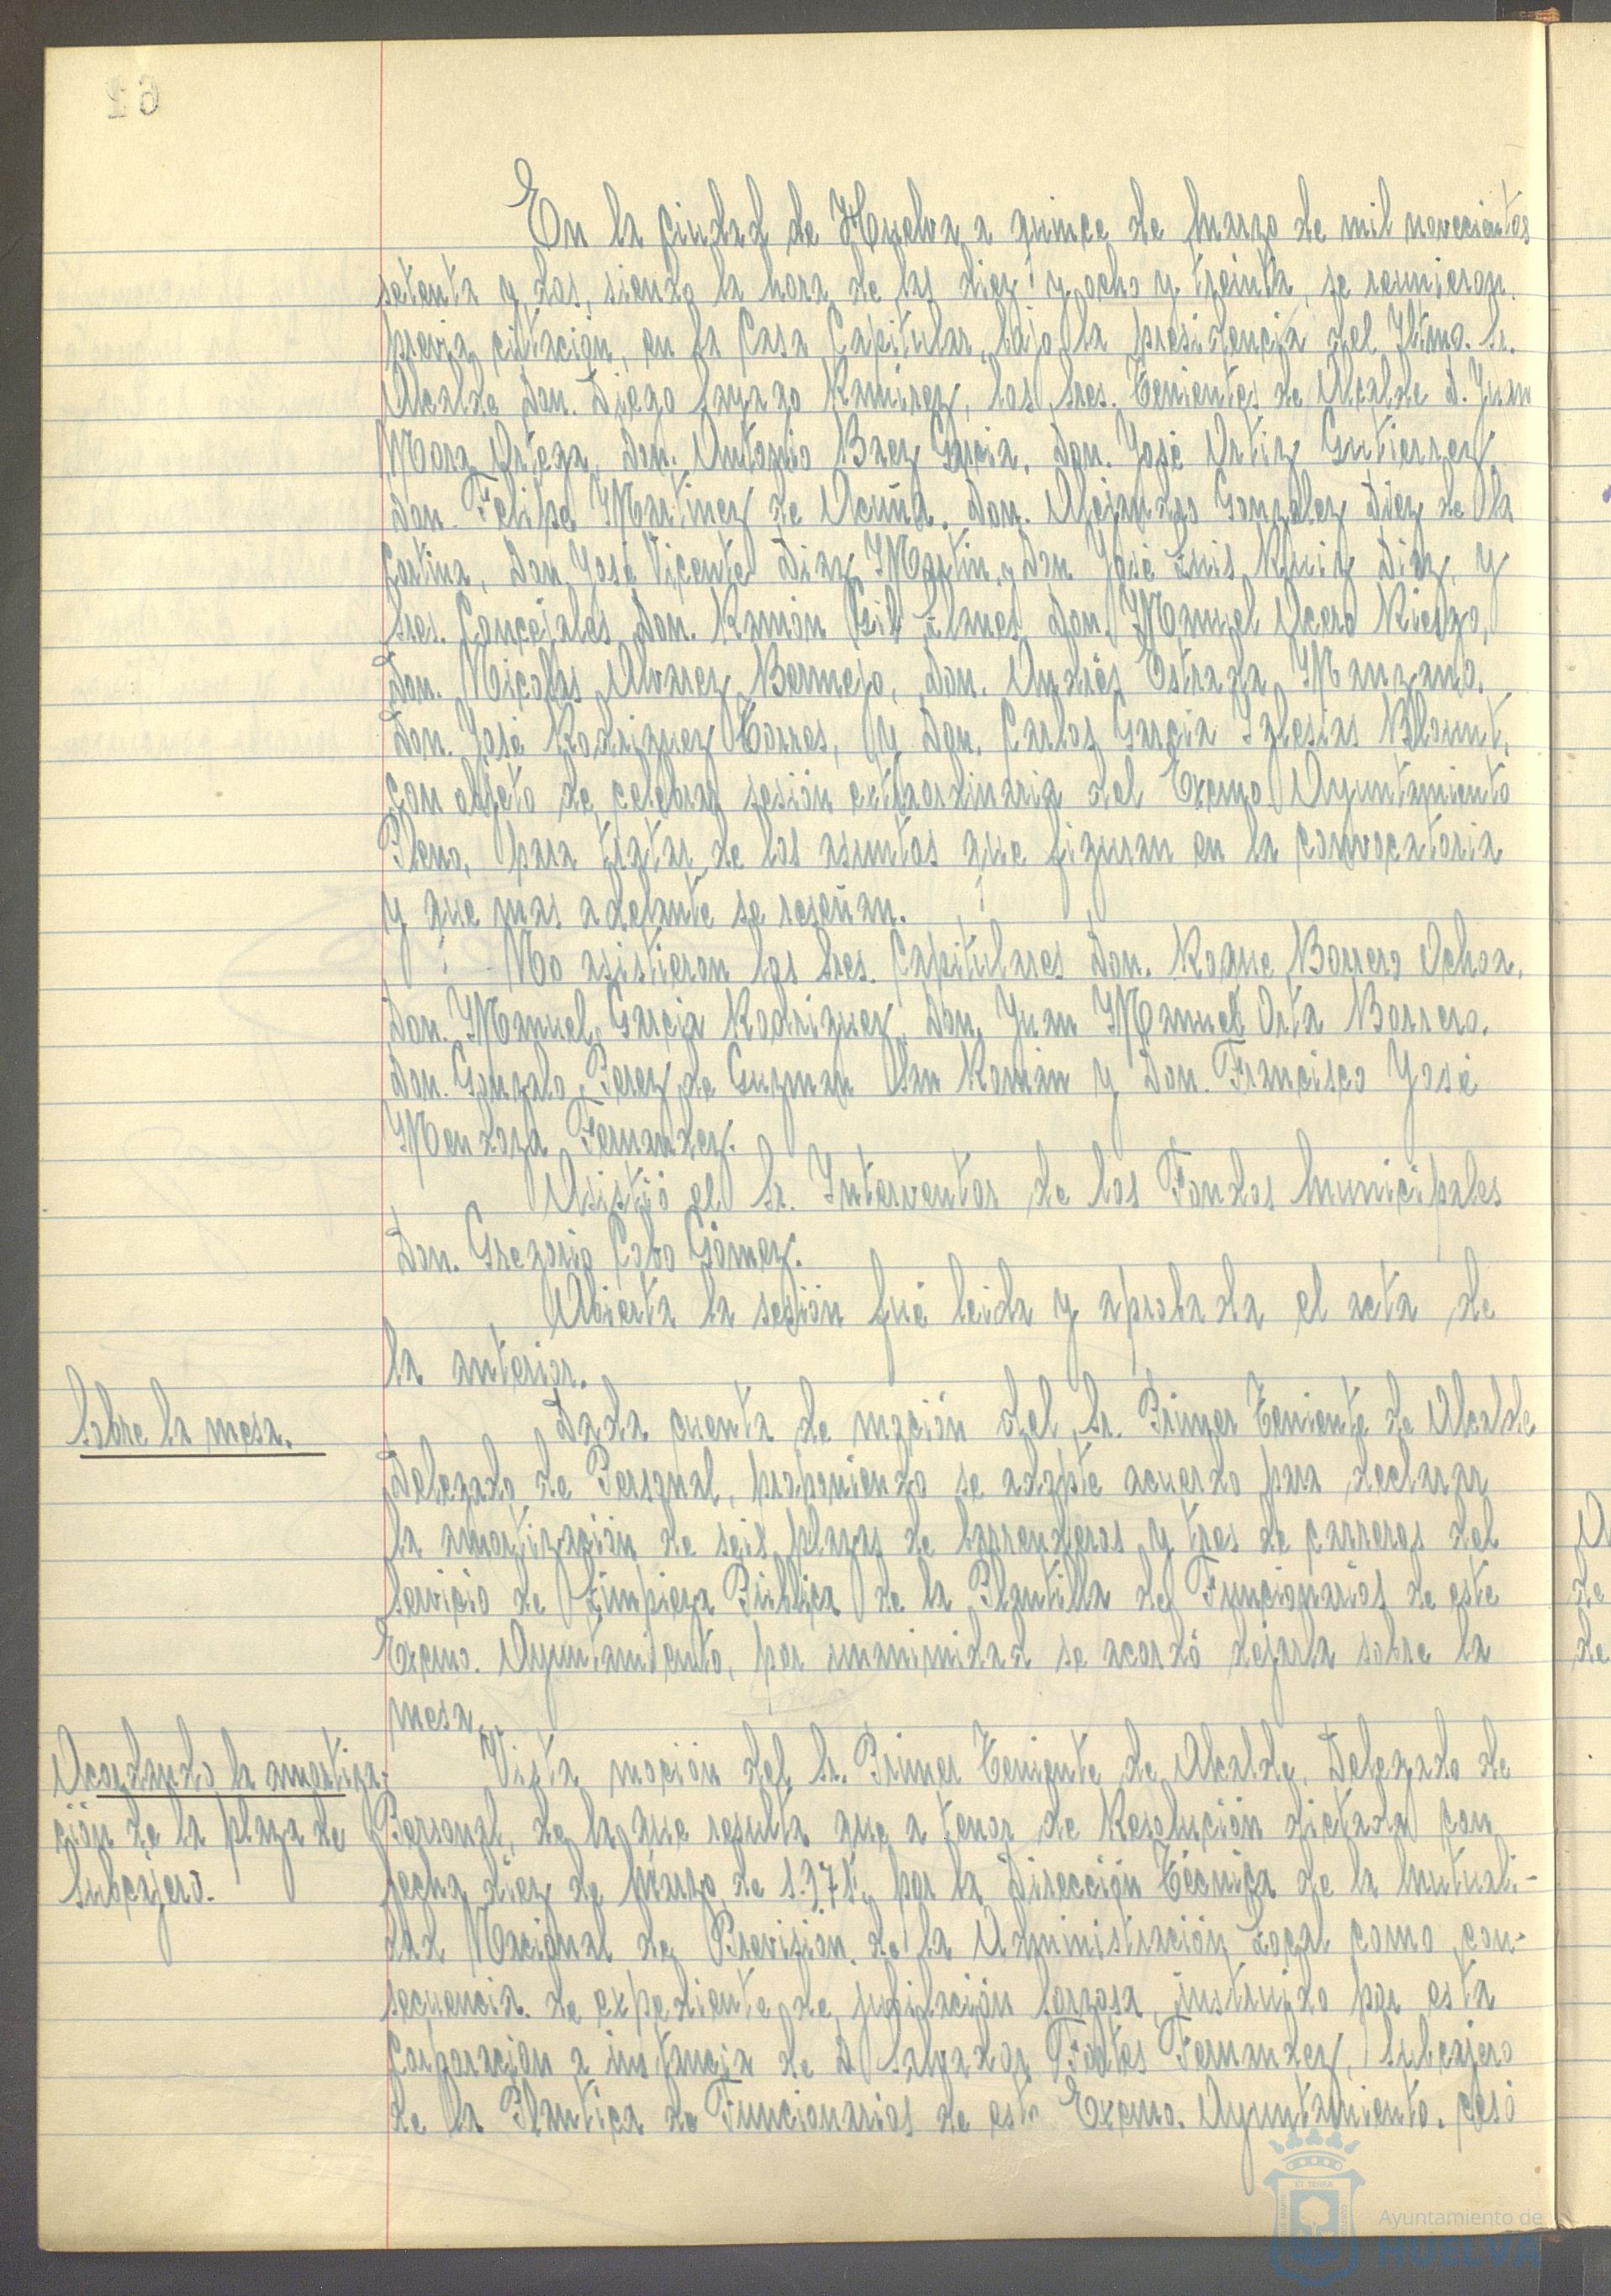 En la Ciudad de Huelva a quince de Marzo de mil novecientos
setenta y dos, siendo la hora de las diez y ocho y treinta, se reunieron
previa citación, en la Casa Capitular, bajo la presidencia del Iltmo. Sr.
Alcalde Don. Diego Sayago Ramirez, los Sres. Tenientes de Alcalde D. Juan
Mora Ortega, Don. Antonio Baez Garcia, Don. José Ortiz Gutierrez
Don. Felipe Martinez de Acuña, Don. Alejandro Gonzalez Diez de la
Cortina, Don José Vicente Diaz Martin, y Don José Luis Ruiz Diaz, y
Sres. Concejales Don. Ramón Gil Llanes Don. Manuel Acero Riesgo,
Don. Nicolás Alvarez Bermejo, Don. Andrés Estrada Manzano,
Don. José Rodriguez Torres, y Don. Carlos Garcia Iglesias Blount,
con objeto de celebrar sesión extraordinaria del Excmo Ayuntamiento
Pleno, para tratar de los asuntos que figuran en la convocatoria
y que mas adelante se reseñan.
No asistieron los Sres. Capitulares Don. Roque Borrero Ochoa,
Don. Manuel Garcia Rodriguez, Don. Juan Manuel Orta Borrero,
Don. Gonzalo Perez de Guzman San Román y Don. Francisco José
Mendoza Fernandez.
Asistió el Sr. Interventor de los Fondos Municipales
Don. Gregorio Cobo Gómez.
Abierta la sesión fué leida y aprobada el acta de
la anterior.
Sobre la mesa.
Dada cuenta de moción del Sr. Primer Teniente de Alcalde
Delegado de Personal, proponiendo se adopte acuerdo para declarar
la amortización de seis plazas de barrenderos y tres de carreros del
Servicio de Limpieza Pública de la Plantilla de Funcionarios de este
Excmo. Ayuntamiento, por unanimidad se acordó dejarla sobre la
mesa.
Acordando la amortiza-
ción de la plaza de
Subcajero.
Vista moción del Sr. Primer Teniente de Alcalde, Delegado de
Personal, de la que resulta que a tenor de Resolución dictada con
fecha diez de Marzo de 1.971, por la Dirección Técnica de la Mutuali-
dad Nacional de Previsión de la Administración Local como con-
secuencia de expediente de jubilación forzosa, instruido por esta
Corporación a instancia de D Salvador Fontes Fernandez, Subcajero
de la Plantica de Funcionarios de este Excmo. Ayuntamiento, cesó
Ayuntamiento de
HUELVA